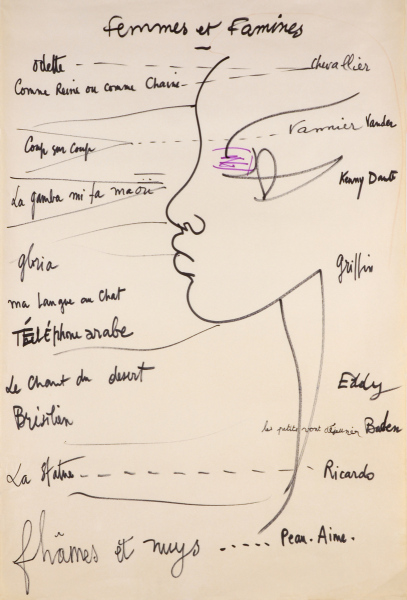 femmes et Famines
odette Chevallier
Comme Reine ou comme Chaine
Coup sur coup Vannier Vander
La gamba mi fa maou Kenny Dante
gloria griffin
ma Langue au Chat
TÉLÉphone arabe
Le Chant du desert Eddy
Brisilien les petits vont déjeuner Baden
La Statue Ricardo
fhâmes et nuys ..... Peau. Aime.